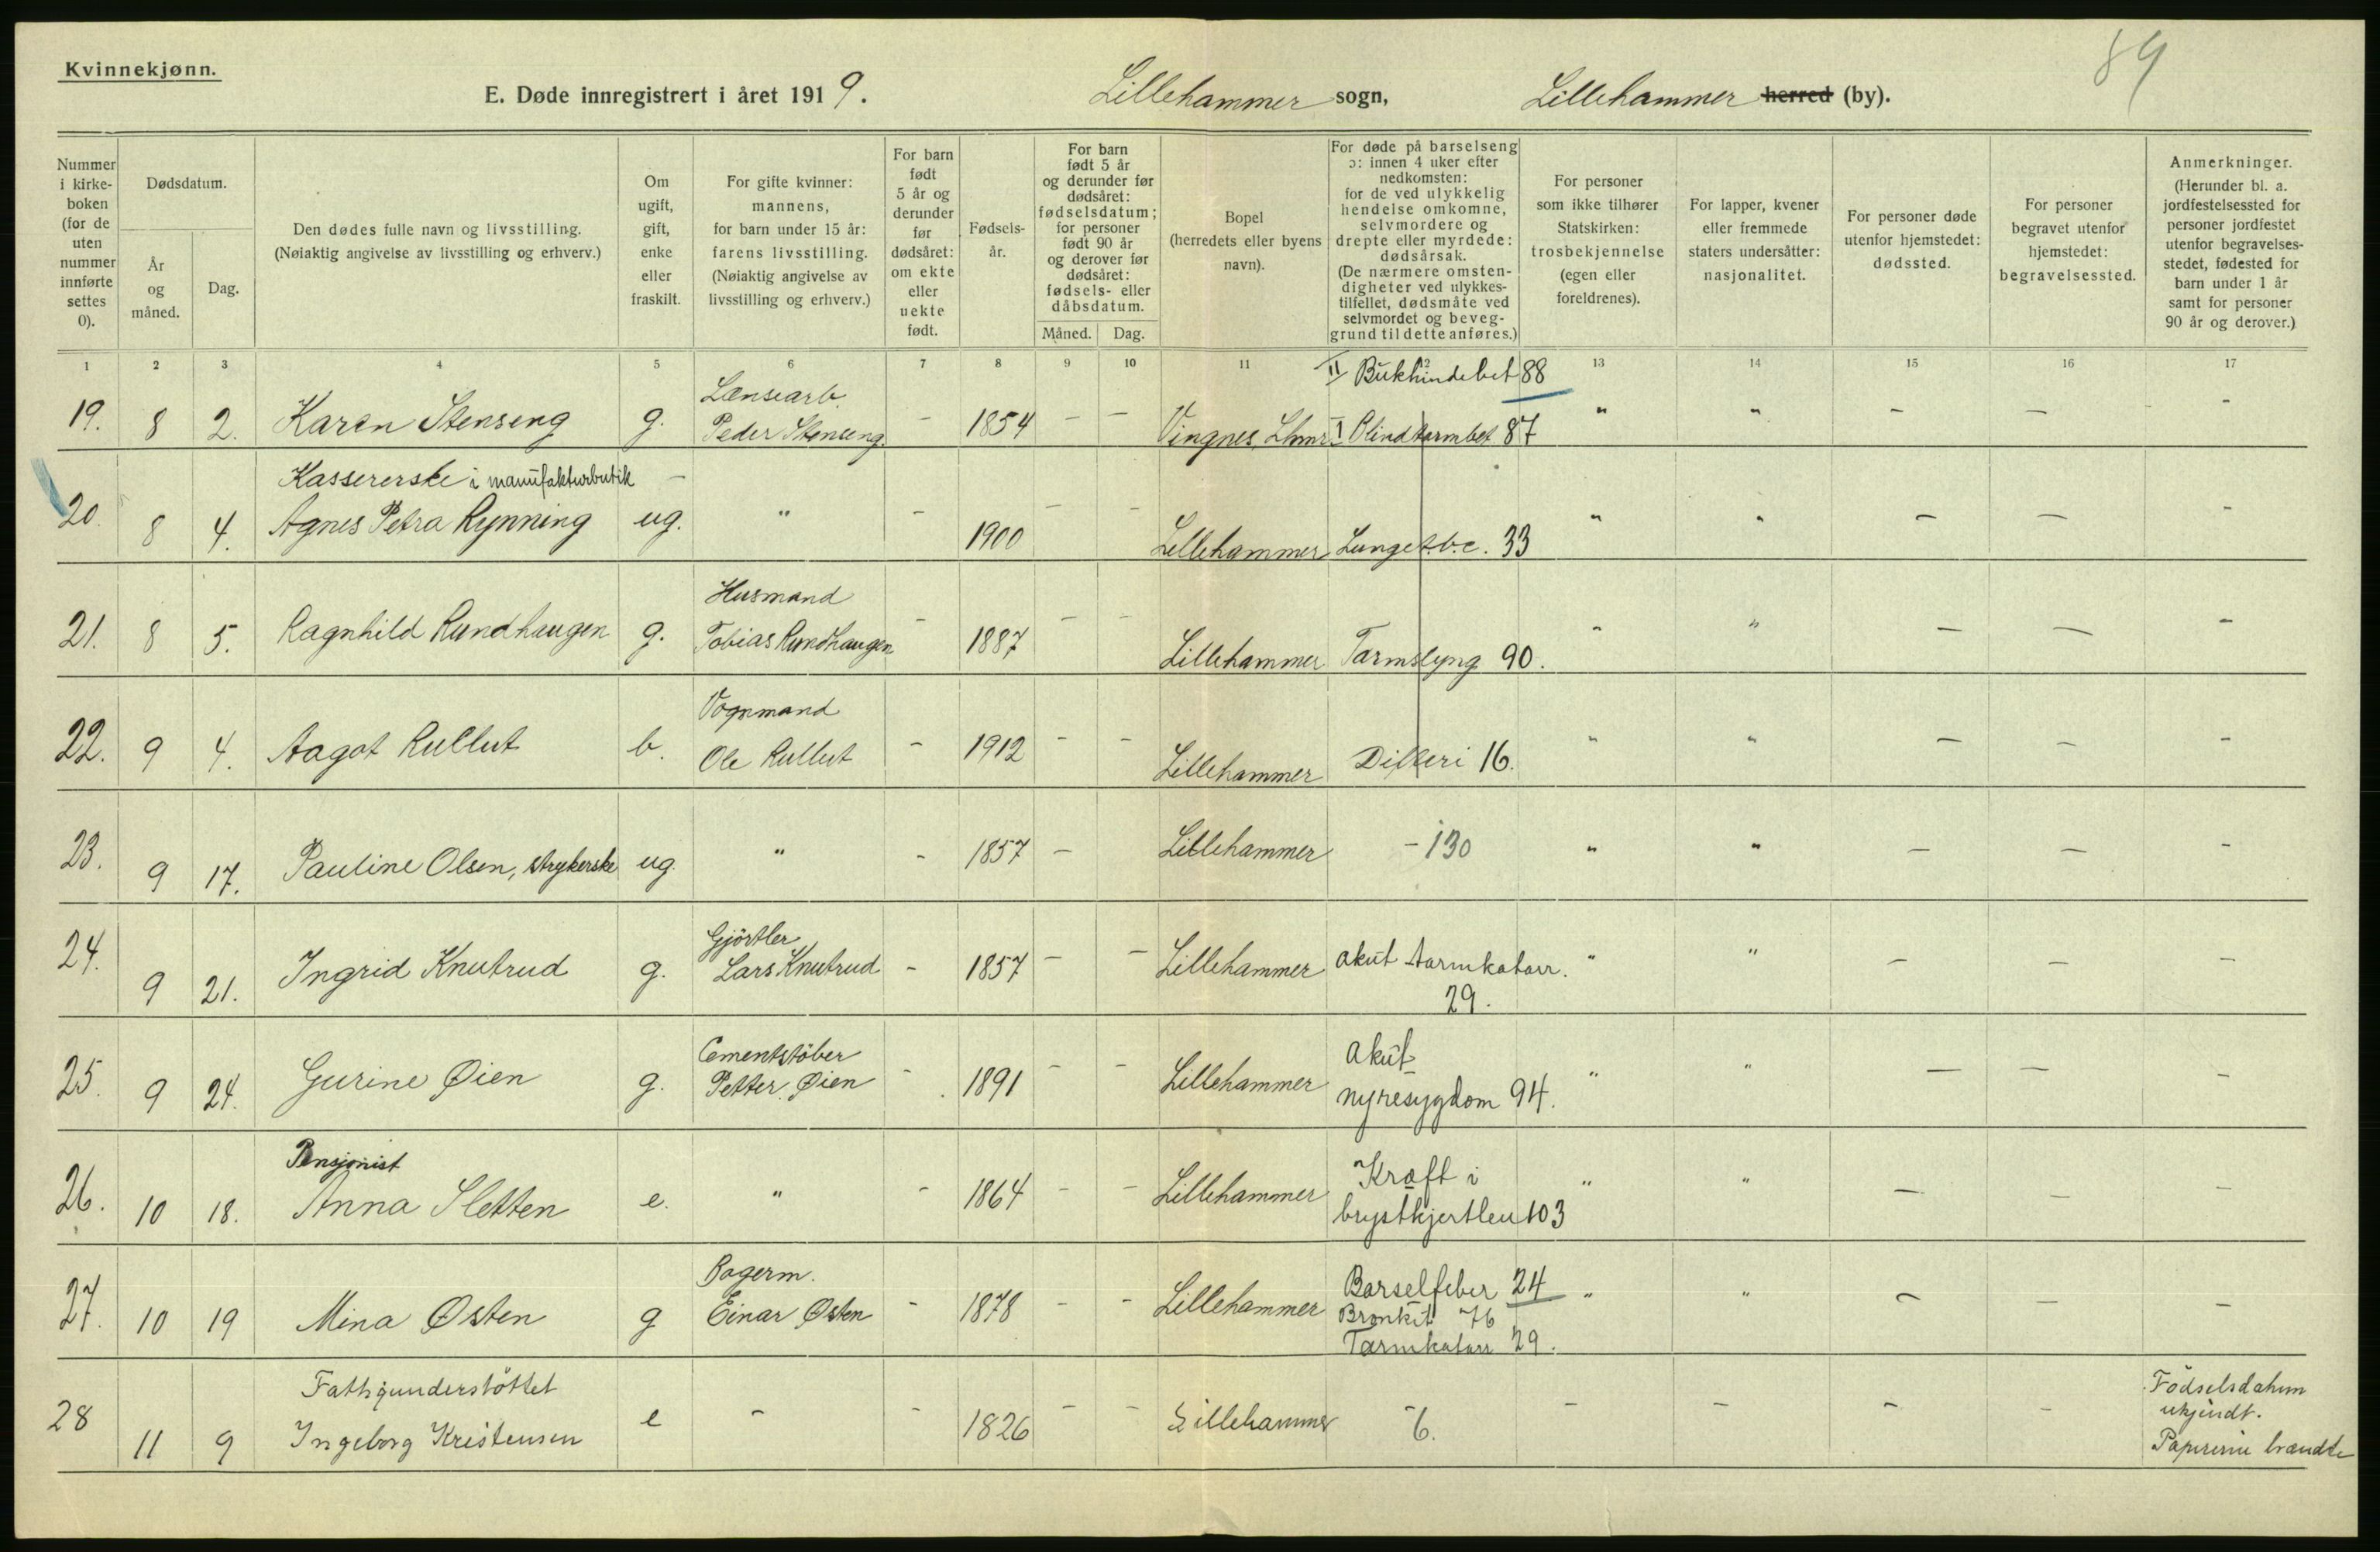 Kvinnekjønn.
89
E. Døde innregistrert i året 1919. Lillehammer sogn, Lillehammer herred (by).
Nummer i kirke- boken (for de uten nummer innførte settes 0).
Dødsdatum.
År og måned.
Dag.
Den dødes fulle navn og livsstilling. (Nøiaktig angivelse av livsstilling og erhverv.)
Om ugift, gift, enke eller fraskilt.
For gifte kvinner: mannens, for barn under 15 år: farens livsstilling. (Nøiaktig angivelse av livsstilling og erhverv.)
For barn født 5 år og derunder før dødsåret: om ekte eller uekte født.
Fødsels- år.
For barn født 5 år og derunder før dødsåret: fødselsdatum; for personer født 90 år og derover før dødsåret: fødsels- eller dåbsdatum.
Måned. Dag.
Bopel (herredets eller byens navn).
For døde på barselseng ɔ: innen 4 uker efter nedkomsten: for de ved ulykkelig hendelse omkomne, selvmordere og drepte eller myrdede: dødsårsak. (De nærmere omsten- digheter ved ulykkes- tilfellet, dødsmåte ved selvmordet og beveg- grund til dette anføres.)
For personer som ikke tilhører Statskirken: trosbekjennelse (egen eller foreldrenes).
For lapper, kvener eller fremmede staters undersåtter: nasjonalitet.
For personer døde utenfor hjemstedet: dødssted.
For personer begravet utenfor hjemstedet: begravelsessted.
Anmerkninger. (Herunder bl. a. jordfestelsessted for personer jordfestet utenfor begravelses- stedet, fødested for barn under 1 år samt for personer 90 år og derover.)
1 2 3 4 5 6 7 8 9 10 11 12 13 14 15 16 17
Lænsearb. II Bukhindebet 88
19. 8 2. Karen Stenseng g. Peder Stenseng. - 1854 - - Vingnes, Lhmr. I Blindtarmbet 87 " " - - -
Kassererske i manufakturbutik -
20. 8 4. Agnes Petra Rynning ug. " - 1900 - - Lillehammer Lunget.b.c. 33 " " - - -
Husmand
21. 8 5. Ragnhild Rundhaugen g. Tobias Rundhaugen - 1887 - - Lillehammer Tarmslyng 90. " " - - -
Vognmand
22. 9 4. Aagot Rullut b. Ole Rullut - 1912 - - Lillehammer Difteri 16. " " - - -
23. 9 17. Pauline Olsen, strykerske ug. " - 1857 - Lillehammer - 130 " " - - -
Gjörtler
24. 9 21. Ingrid Knutrud g. Lars Knutrud - 1857 - - Lillehammer akut tarmkatarr. " " - - -
29.
Cementstöber akut
25. 9 24. Gurine Øien g. Petter Øien - 1891 - - Lillehammer nyresygdom 94. " " - - -
Pensjonist Kræft i
26. 10 18. Anna Sletten e. " - 1864 - - Lillehammer brystkjertlen 103 " " - - -
Bagerm. Barselfeber 24
27. 10 19 Mina Østen g Einar Østen - 1878 - - Lillehammer Bronkit 76 " " - - -
Tarmkatarr 29.
Fattigunderstöttet Födselsdatum
28 11 9 Ingeborg Kristensen e - - 1826 - - Lillehammer - 6. - - - - ukjendt.
Papirerne brændte